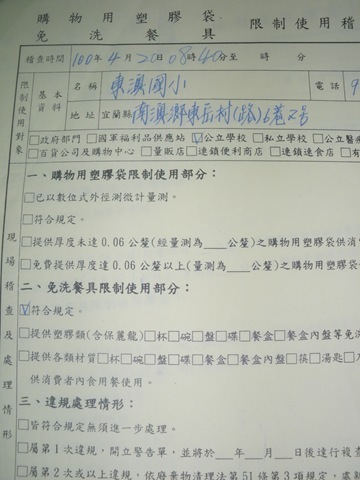 購物用塑膠袋
免洗餐具 限制使用稽
稽查時間 100年4月20日08時40分至 時 分
限制使用對象
基本資料
名稱 東澳國小 電話 9
地址 宜蘭縣南澳鄉東岳村(路)6巷2號
□政府部門 □國軍福利品供應站 ☑公立學校 □私立學校 □公立醫
□百貨公司及購物中心 □量販店 □連鎖便利商店 □連鎖速食店 □有
現場稽查及處理情形
一、購物用塑膠袋限制使用部分：
□已以數位式外徑測微計量測。
□符合規定。
□提供厚度未達0.06公釐(經量測為____公釐)之購物用塑膠袋供消
□免費提供厚度達0.06公釐以上(量測為____公釐)之購物用塑膠袋
二、免洗餐具限制使用部分：
☑符合規定。
□提供塑膠類(含保麗龍)□杯□碗□盤□碟□餐盒□餐盒內盤等免
□提供各類材質□杯□碗□盤□碟□餐盒□餐盒內盤□筷□湯匙□
供消費者內食用餐使用。
三、違規處理情形：
□皆符合規定無須進一步處理。
□屬第1次違規，開立警告單，並將於__年__月__日後進行複查
□屬第2次或以上違規，依廢棄物清理法第51條第3項規定，處